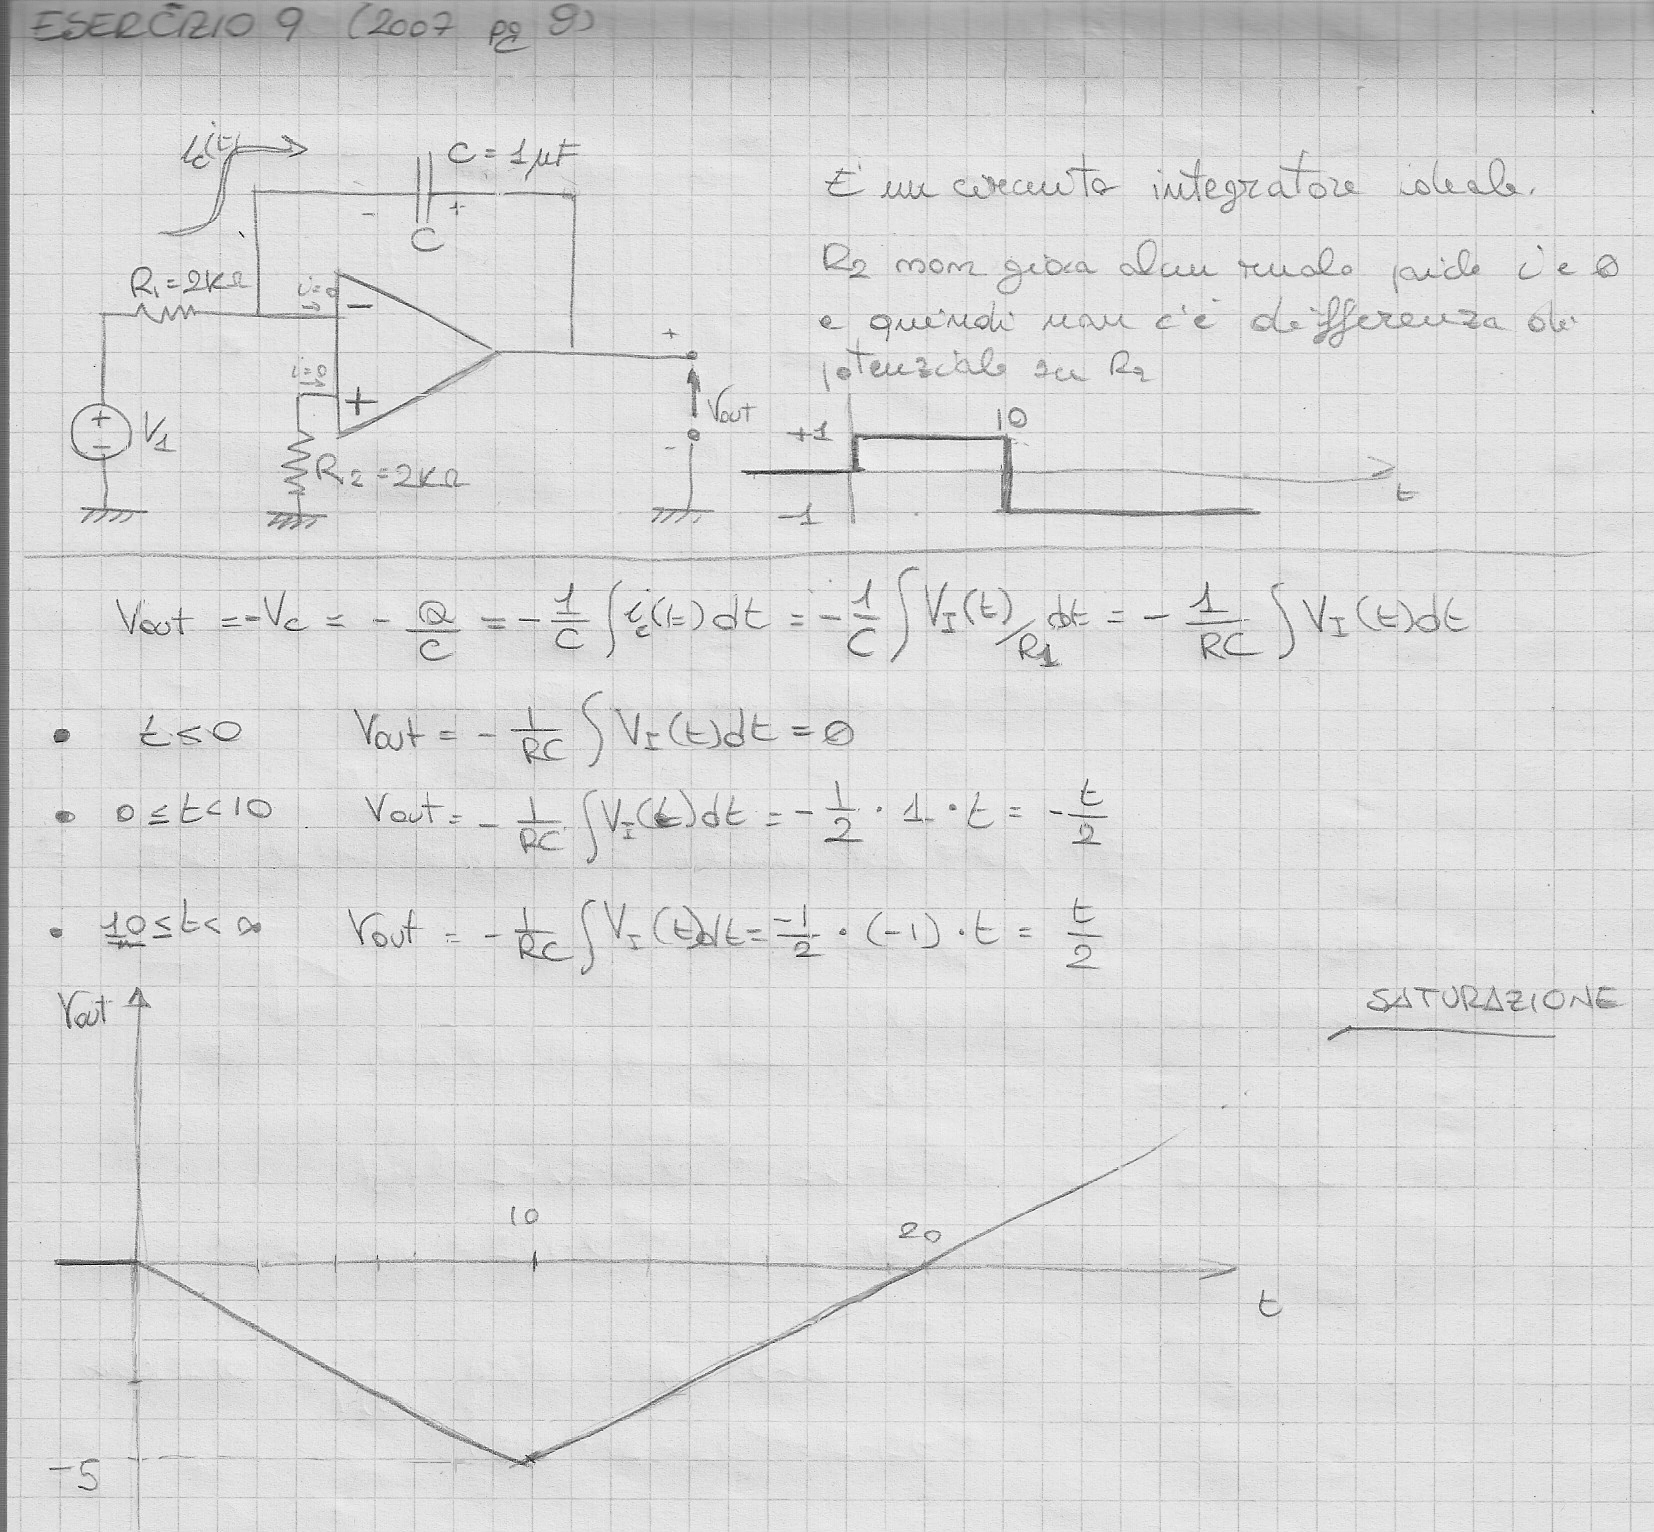 ESERCIZIO 9 (2007 pg 9)
ic(t)
C = 1μF
- +
C
R1 = 2KΩ
i=0
-
i=0
+
+
-
V1
R2 = 2KΩ
+
Vout
-
E' un circuito integratore ideale.
R2 non gioca alcun ruolo perché i è 0
e quindi non c'è differenza di
potenziale su R2
+1
10
-1
t
Vout = -Vc = - Q/C = - 1/C ∫ ic(t) dt = - 1/C ∫ VI(t)/R1 dt = - 1/RC ∫ VI(t) dt
• t ≤ 0 Vout = - 1/RC ∫ VI(t) dt = 0
• 0 ≤ t < 10 Vout = - 1/RC ∫ VI(t) dt = - 1/2 · 1 · t = - t/2
• 10 ≤ t < ∞ Vout = - 1/RC ∫ VI(t) dt = -1/2 · (-1) · t = t/2
Vout
SATURAZIONE
10
20
t
-5